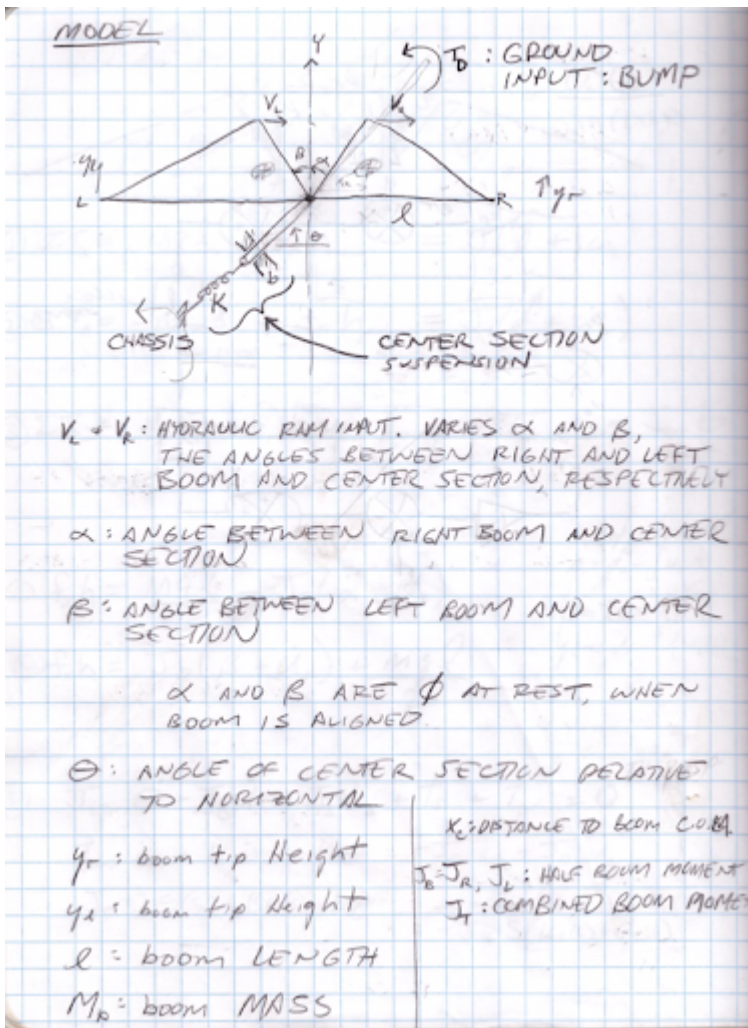 MODEL
Y
T_D : GROUND
INPUT : BUMP
V_L
V_R
β
α
L
R
l
↑y_r
θ
b
K
CHASSIS
CENTER SECTION
SUSPENSION
V_L + V_R : HYDRAULIC RAM INPUT. VARIES α AND β,
THE ANGLES BETWEEN RIGHT AND LEFT
BOOM AND CENTER SECTION, RESPECTIVELY
α : ANGLE BETWEEN RIGHT BOOM AND CENTER
SECTION
β : ANGLE BETWEEN LEFT BOOM AND CENTER
SECTION
α AND β ARE Ø AT REST, WHEN
BOOM IS ALIGNED.
θ : ANGLE OF CENTER SECTION RELATIVE
TO HORIZONTAL
y_r : boom tip Height
y_l : boom tip Height
l : boom LENGTH
M_B : boom MASS
X_c : DISTANCE TO BOOM C.O.M.
J_B = J_R, J_L : HALF BOOM MOMENT
J_T : COMBINED BOOM MOME